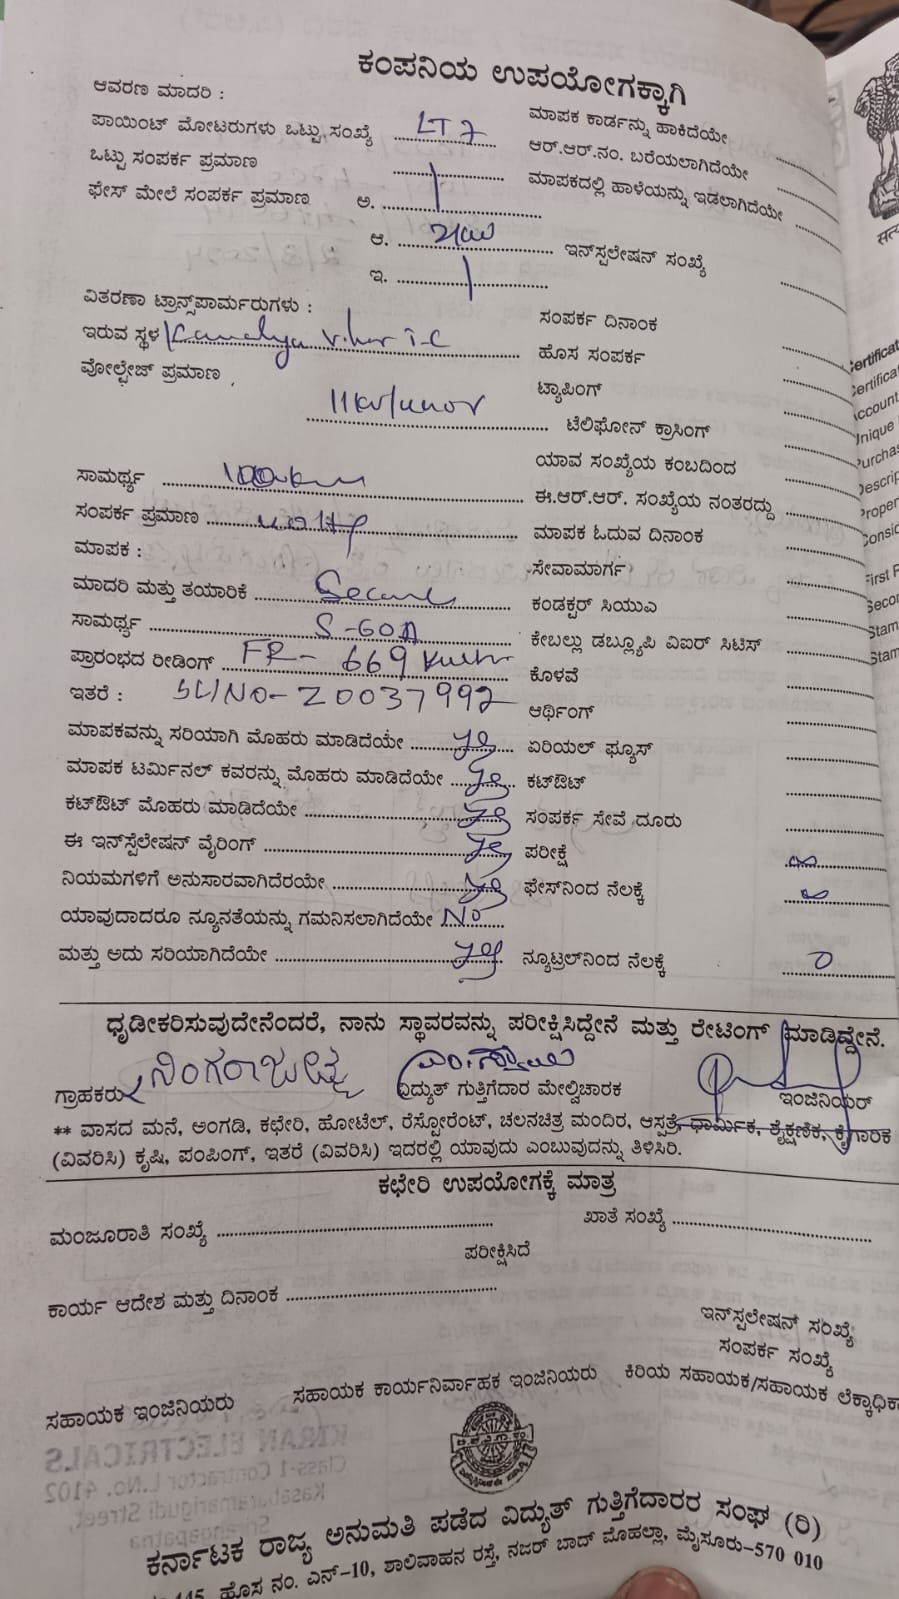 ಕಂಪನಿಯ ಉಪಯೋಗಕ್ಕಾಗಿ
ಆವರಣ ಮಾದರಿ :
ಮಾಪಕ ಕಾರ್ಡನ್ನು ಹಾಕಿದೆಯೇ
ಪಾಯಿಂಟ್ ಮೋಟರುಗಳು ಒಟ್ಟು ಸಂಖ್ಯೆ LT 7
ಆರ್.ಆರ್.ನಂ. ಬರೆಯಲಾಗಿದೆಯೇ
ಒಟ್ಟು ಸಂಪರ್ಕ ಪ್ರಮಾಣ
ಮಾಪಕದಲ್ಲಿ ಹಾಳೆಯನ್ನು ಇಡಲಾಗಿದೆಯೇ
ಫೇಸ್ ಮೇಲೆ ಸಂಪರ್ಕ ಪ್ರಮಾಣ ಅ.
ಆ. ಇನ್‌ಸ್ಪಲೇಷನ್ ಸಂಖ್ಯೆ
ಇ.
ವಿತರಣಾ ಟ್ರಾನ್ಸ್‌ಪಾರ್ಮರುಗಳು :
ಸಂಪರ್ಕ ದಿನಾಂಕ
ಇರುವ ಸ್ಥಳ
ಹೊಸ ಸಂಪರ್ಕ
ವೋಲ್ಟೇಜ್ ಪ್ರಮಾಣ
ಟ್ಯಾಪಿಂಗ್
ಟೆಲಿಫೋನ್ ಕ್ರಾಸಿಂಗ್
ಯಾವ ಸಂಖ್ಯೆಯ ಕಂಬದಿಂದ
ಸಾಮರ್ಥ್ಯ
ಈ.ಆರ್.ಆರ್. ಸಂಖ್ಯೆಯ ನಂತರದ್ದು
ಸಂಪರ್ಕ ಪ್ರಮಾಣ
ಮಾಪಕ ಓದುವ ದಿನಾಂಕ
ಮಾಪಕ :
ಸೇವಾಮಾರ್ಗ
ಮಾದರಿ ಮತ್ತು ತಯಾರಿಕೆ Secure
ಕಂಡಕ್ಟರ್ ಸಿಯುಎ
ಸಾಮರ್ಥ್ಯ 5-60A
ಕೇಬಲ್ಲು ಡಬ್ಲ್ಯೂಪಿ ವಿಐರ್ ಸಿಟಿಸ್
ಪ್ರಾರಂಭದ ರೀಡಿಂಗ್ FR- 669
ಕೊಳವೆ
ಇತರೆ : SL/NO-Z0037992
ಆರ್ಥಿಂಗ್
ಮಾಪಕವನ್ನು ಸರಿಯಾಗಿ ಮೊಹರು ಮಾಡಿದೆಯೇ yes
ಏರಿಯಲ್ ಫ್ಯೂಸ್
ಮಾಪಕ ಟರ್ಮಿನಲ್ ಕವರನ್ನು ಮೊಹರು ಮಾಡಿದೆಯೇ yes
ಕಟ್‌ಔಟ್
ಕಟ್‌ಔಟ್ ಮೊಹರು ಮಾಡಿದೆಯೇ yes
ಸಂಪರ್ಕ ಸೇವೆ ದೂರು
ಈ ಇನ್‌ಸ್ಪೆಲೇಷನ್ ವೈರಿಂಗ್ yes
ಪರೀಕ್ಷೆ
ನಿಯಮಗಳಿಗೆ ಅನುಸಾರವಾಗಿದೆರಯೇ yes
ಫೇಸ್‌ನಿಂದ ನೆಲಕ್ಕೆ
ಯಾವುದಾದರೂ ನ್ಯೂನತೆಯನ್ನು ಗಮನಿಸಲಾಗಿದೆಯೇ No
ಮತ್ತು ಅದು ಸರಿಯಾಗಿದೆಯೇ yes
ನ್ಯೂಟ್ರಲ್‌ನಿಂದ ನೆಲಕ್ಕೆ 0
ಧೃಡೀಕರಿಸುವುದೇನೆಂದರೆ, ನಾನು ಸ್ಥಾವರವನ್ನು ಪರೀಕ್ಷಿಸಿದ್ದೇನೆ ಮತ್ತು ರೇಟಿಂಗ್ ಮಾಡಿದ್ದೇನೆ.
ಗ್ರಾಹಕರು
ವಿದ್ಯುತ್ ಗುತ್ತಿಗೆದಾರ ಮೇಲ್ವಿಚಾರಕ
ಇಂಜಿನಿಯರ್
** ವಾಸದ ಮನೆ, ಅಂಗಡಿ, ಕಛೇರಿ, ಹೋಟೆಲ್, ರೆಸ್ಟೋರೆಂಟ್, ಚಲನಚಿತ್ರ ಮಂದಿರ, ಆಸ್ಪತ್ರೆ, ಧಾರ್ಮಿಕ, ಶೈಕ್ಷಣಿಕ, ಕೈಗಾರಿಕ
(ವಿವರಿಸಿ) ಕೃಷಿ, ಪಂಪಿಂಗ್, ಇತರೆ (ವಿವರಿಸಿ) ಇದರಲ್ಲಿ ಯಾವುದು ಎಂಬುವುದನ್ನು ತಿಳಿಸಿರಿ.
ಕಛೇರಿ ಉಪಯೋಗಕ್ಕೆ ಮಾತ್ರ
ಮಂಜೂರಾತಿ ಸಂಖ್ಯೆ
ಖಾತೆ ಸಂಖ್ಯೆ
ಪರೀಕ್ಷಿಸಿದೆ
ಕಾರ್ಯ ಆದೇಶ ಮತ್ತು ದಿನಾಂಕ
ಇನ್‌ಸ್ಪಲೇಷನ್ ಸಂಖ್ಯೆ
ಸಂಪರ್ಕ ಸಂಖ್ಯೆ
ಸಹಾಯಕ ಇಂಜಿನಿಯರು
ಸಹಾಯಕ ಕಾರ್ಯನಿರ್ವಾಹಕ ಇಂಜಿನಿಯರು
ಕಿರಿಯ ಸಹಾಯಕ/ಸಹಾಯಕ ಲೆಕ್ಕಾಧಿಕಾ
ಕರ್ನಾಟಕ ರಾಜ್ಯ ಅನುಮತಿ ಪಡೆದ ವಿದ್ಯುತ್ ಗುತ್ತಿಗೆದಾರರ ಸಂಘ (ರಿ)
ಹೊಸ ನಂ. ಎನ್-10, ಶಾಲಿವಾಹನ ರಸ್ತೆ, ನಜರ್ ಬಾದ್ ಮೊಹಲ್ಲಾ, ಮೈಸೂರು-570 010